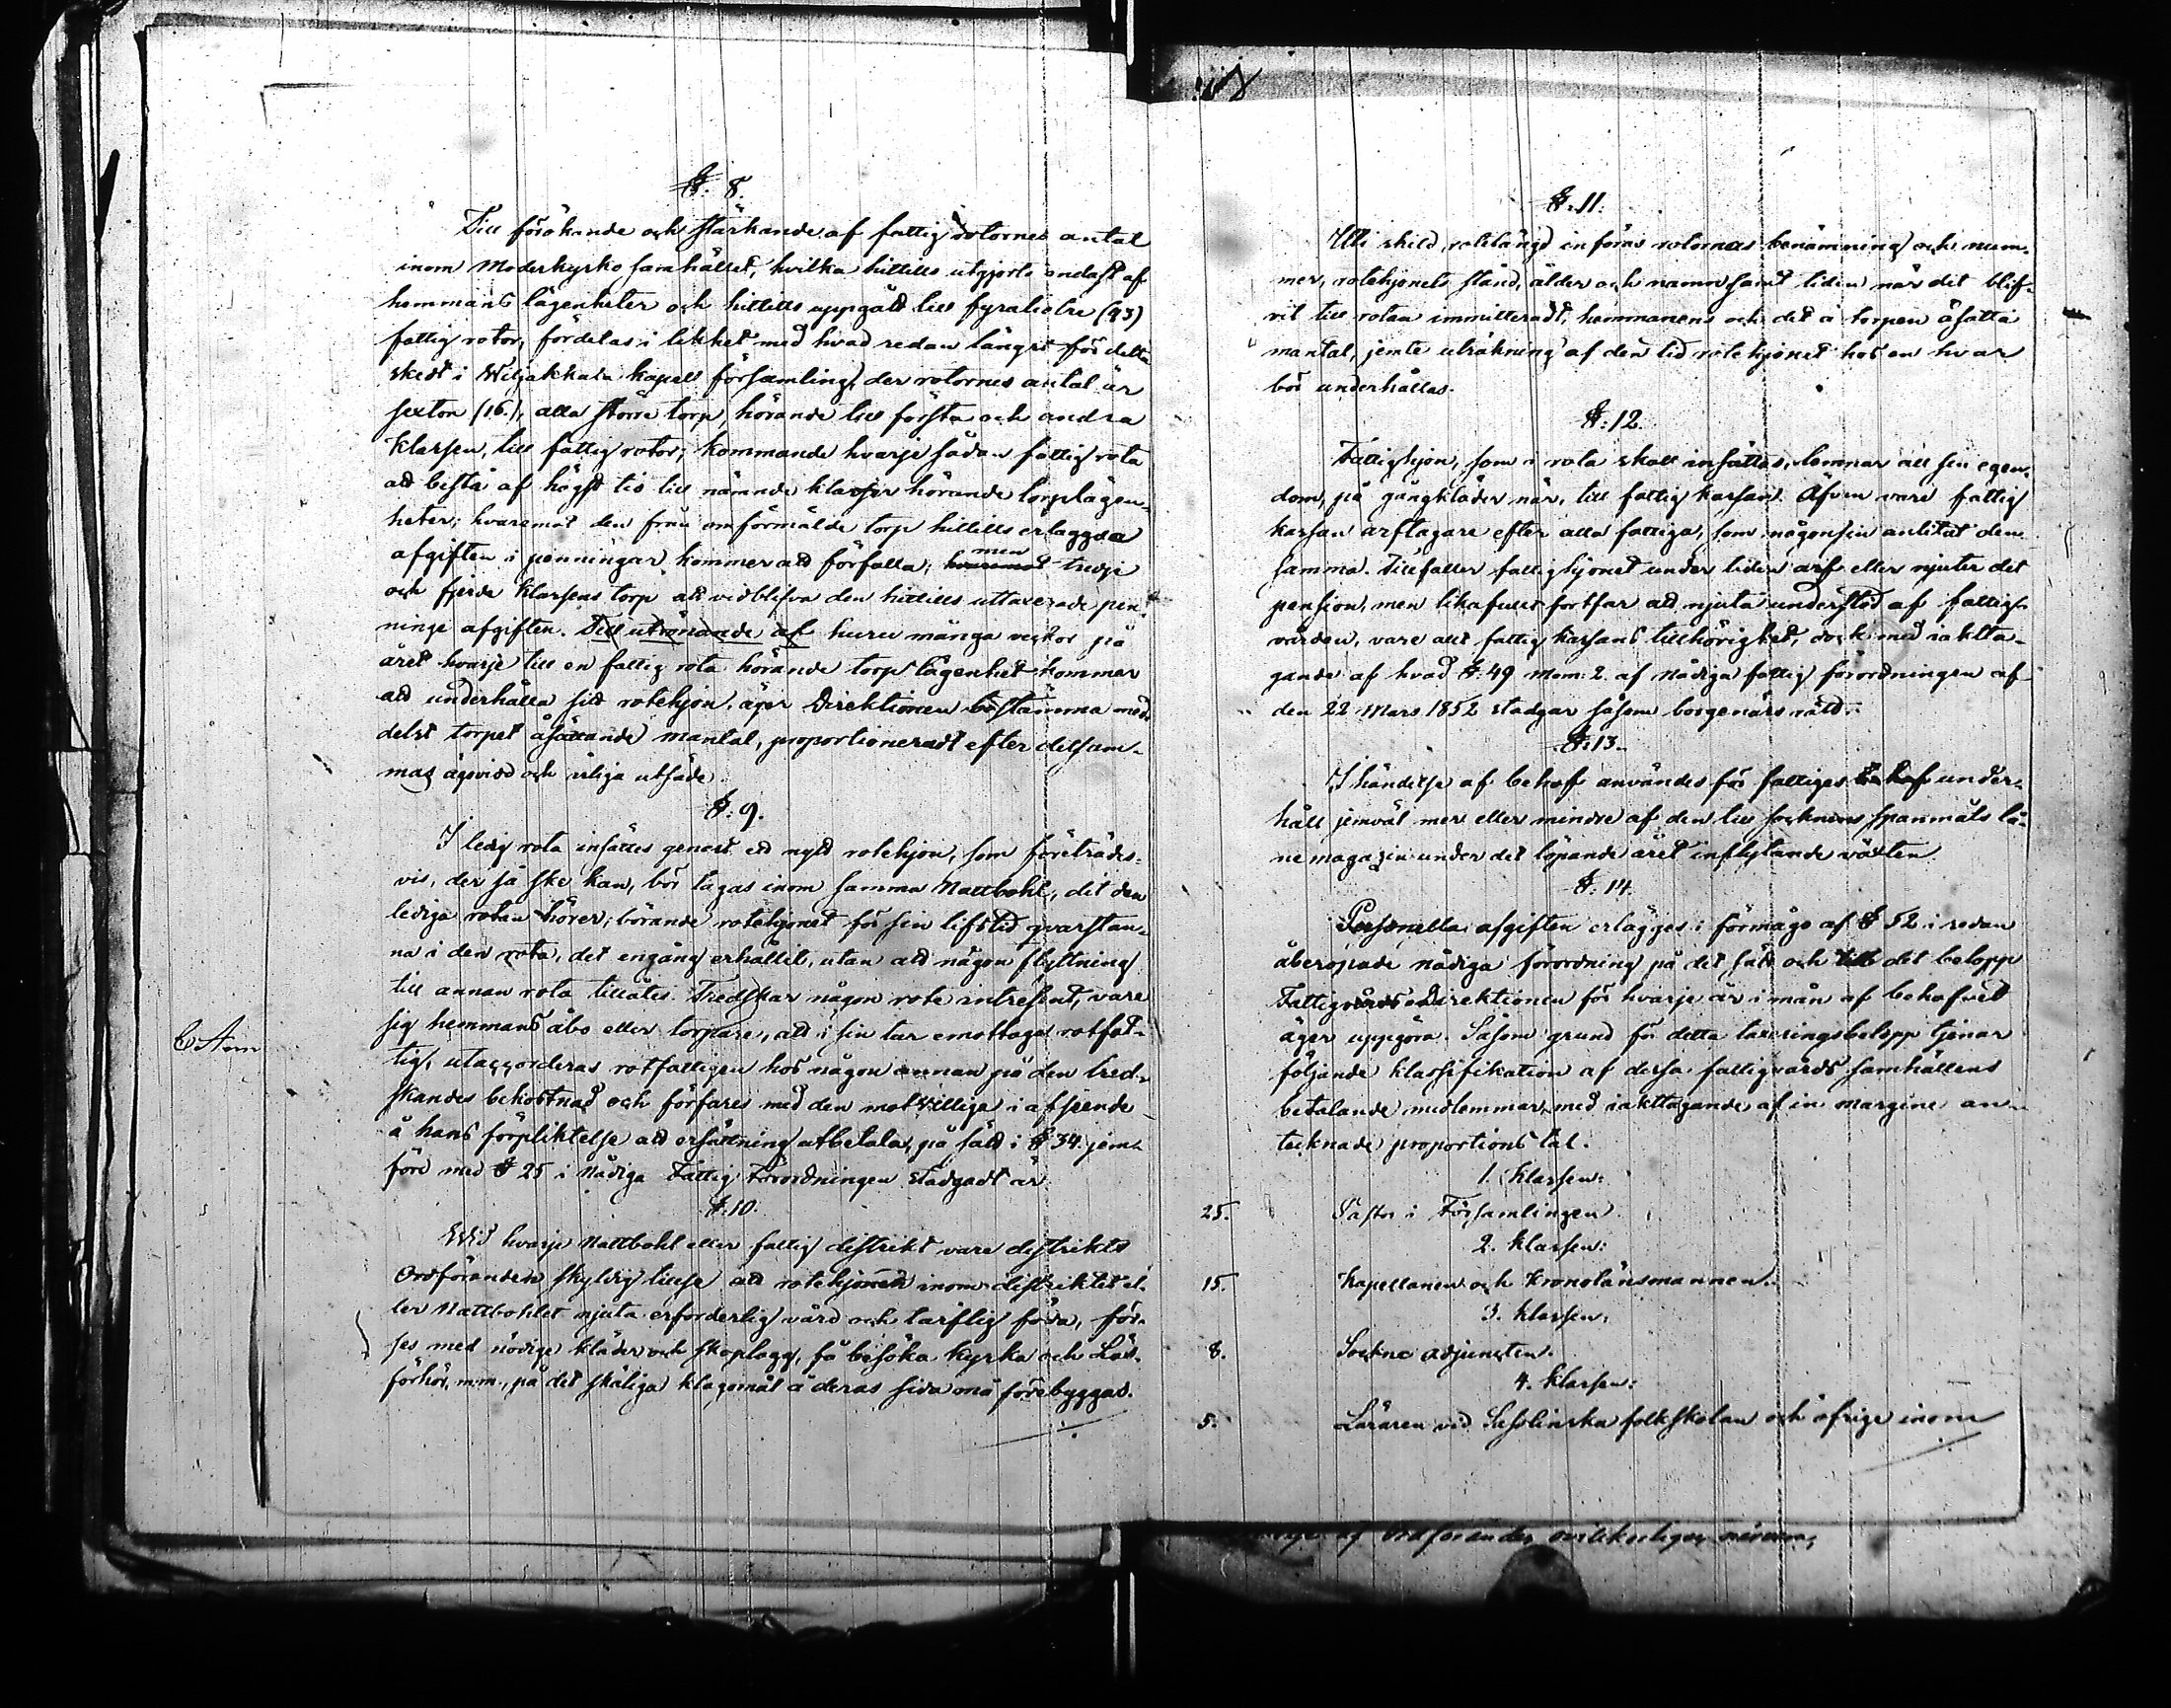 §. 8.
Till förökande och stärkande af fattig rotornes antal
inom Moderkyrko samhället, hvilka hittills utgjorts endast af
hemmans lägenheter och hittills uppgått till fyratiotre (43)
fattig rotor, fördelas i likhet med hvad redan längre för detta
skedt i Wiljakkala kapell församling, der rotornes antal är
sexton (16.), alla större torp, hörande till första och andra
Klassen, till fattig rotor; kommande hvarje sådan fattig rota
att bestå af högst tio till nämnde klasser hörande torplägen-
heter; hvaremot den från omförmälde torp hittills erlaggda
afgiften i penningar kommer att förfalla; hvaremot men tredje
och fjerde Klassens torp att vidblifva den hittills uttaxerade pen-
ninge afgiften. Till utrönande af huru många veckor på
året hvarje till en fattig rota hörande torp lägenhet kommer
att underhålla sitt rotehjon, äger Direktionen bestämma med-
delst torpet åsättande mantal, proportioneradt efter detsam-
mas ägovidd och årliga utsäde.
§. 9.
I ledig rota insättes genast ett nytt rotehjon, som företrädes-
vis, der så ske kan, bör tagas inom samma Mattbohl, dit den
lediga rotan hörer; börande rotehjonet för sin lifstid qvarstan-
na i den rota, det engång erhållit, utan att någon flyttning
till annan rota tillåtes. Tredskar någon rote intressent, vare
sig hemmans åbo eller torpare, att i sin tur emottaga rotfat-
tig, utaccorderas rotfattigen hos någon annan på den tred-
skandes bekostnad och förfares med den motvillige i afseende
å hans förpliktelse att ersättning utbetala, på sätt i § 34 jem-
förd med § 25 i Nådiga Fattig Förordningen stadgadt är.
§. 10.
Wid hvarje Mattbohl eller fattig distrikt vare distrikts
Ordföranden skyldig tillse att rotehjonen inom distriktet el-
ler Mattbohlet njuta erforderlig vård och tarflig föda, för-
ses med nödige kläder och skoplagg, få besöka kyrka och Läs-
förhör, m.m., på det skäliga klagomål å deras sida må förebyggas.
§. 11.
Uti skild rotelängd införas rotornas benämning och num-
mer, rotehjonets stånd, ålder och namn samt tiden när det blif-
vit till rotan immitteradt, hemmanens och det å torpen åsatta
mantal, jemte uträkning af den tid rotehjonet hos en hvar
bör underhållas.
§. 12.
Fattighjon, som i rota skall insättas, lemnar all sin egen-
dom, på gångkläder när, till fattig kassan. Äfven vare fattig
kassan arftagare efter alla fattiga, som någonsin anlitat den
samma. Tillfaller fattighjonet under tiden arf eller njuter det
pension, men likafullt fortfar att njuta understöd af fattig-
vården, vare allt fattig kassans tillhörighet, dock med iaktta-
gande af hvad §. 49 mom: 2 af Nådiga fattig förordningen af
den 22 Mars 1852 stadgar såsom borgenärs rätt.
§. 13.
I händelse af behof användes för fattiges behof under-
håll jemväl mer eller mindre af den till socknens spanmåls lå-
ne magazin under det löpande året inflytande växten.
§. 14.
Personella afgiften erlägges i förmågo af § 52 i redan
åberopade nådiga förordning på det sätt och till det belopp
Fattigvårds Direktionen för hvarje år i mån af behofvet
äger uppgöra. Såsom grund för detta taxeringsbelopp tjenar
följande klassifikation af dessa fattigvårds samhällens
betalande medlemmar, med iakttagande af in margine an-
tecknade proportions tal.
1. Klassen:
25. Pastor i Församlingen
2. Klassen:
15. Kapellanen och Kronolänsmannen.
3. Klassen.
8. Sockne adjuncten.
4. Klassen:
5. Läraren vid folkskolan och öfrige inom
af Ordföranden